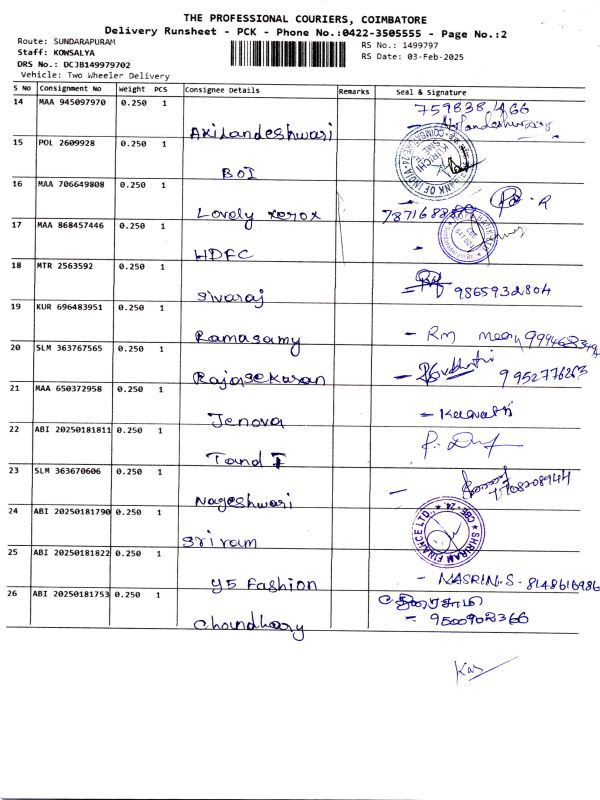 THE PROFESSIONAL COURIERS, COIMBATORE
Delivery Runsheet - PCK - Phone No.:0422-3505555 - Page No.:2
Route: SUNDARAPURAM
RS No.: 1499797
Staff: KOWSALYA
RS Date: 03-Feb-2025
DRS No.: DCJB149979702
Vehicle: Two Wheeler Delivery
S No Consignment No Weight PCS Consignee Details Remarks Seal & Signature
14 MAA 945097970 0.250 1
Akilandeshwari
15 POL 2609928 0.250 1
BOI
BANK OF INDIA
16 MAA 706649808 0.250 1
Lovely xerox
17 MAA 868457446 0.250 1
HDFC
18 MTR 2563592 0.250 1
Sivaraj 9865932804
19 KUR 696483951 0.250 1
Ramasamy
20 SLM 363767565 0.250 1
Rajasekaran 9952776263
21 MAA 650372958 1
Jenova
22 ABI 20250181811 0.250 1
Tand I
23 SLM 363670606 0.250 1
Nageshwari
24 ABI 20250181790 0.250 1
Sriram
SHRIRAM FINANCE LTD., CBE - 24
25 ABI 20250181822 0.250 1
Y5 Fashion - NASRIN.S - 8148616986
26 ABI 20250181753 0.250 1
Choudhary - 9500902366